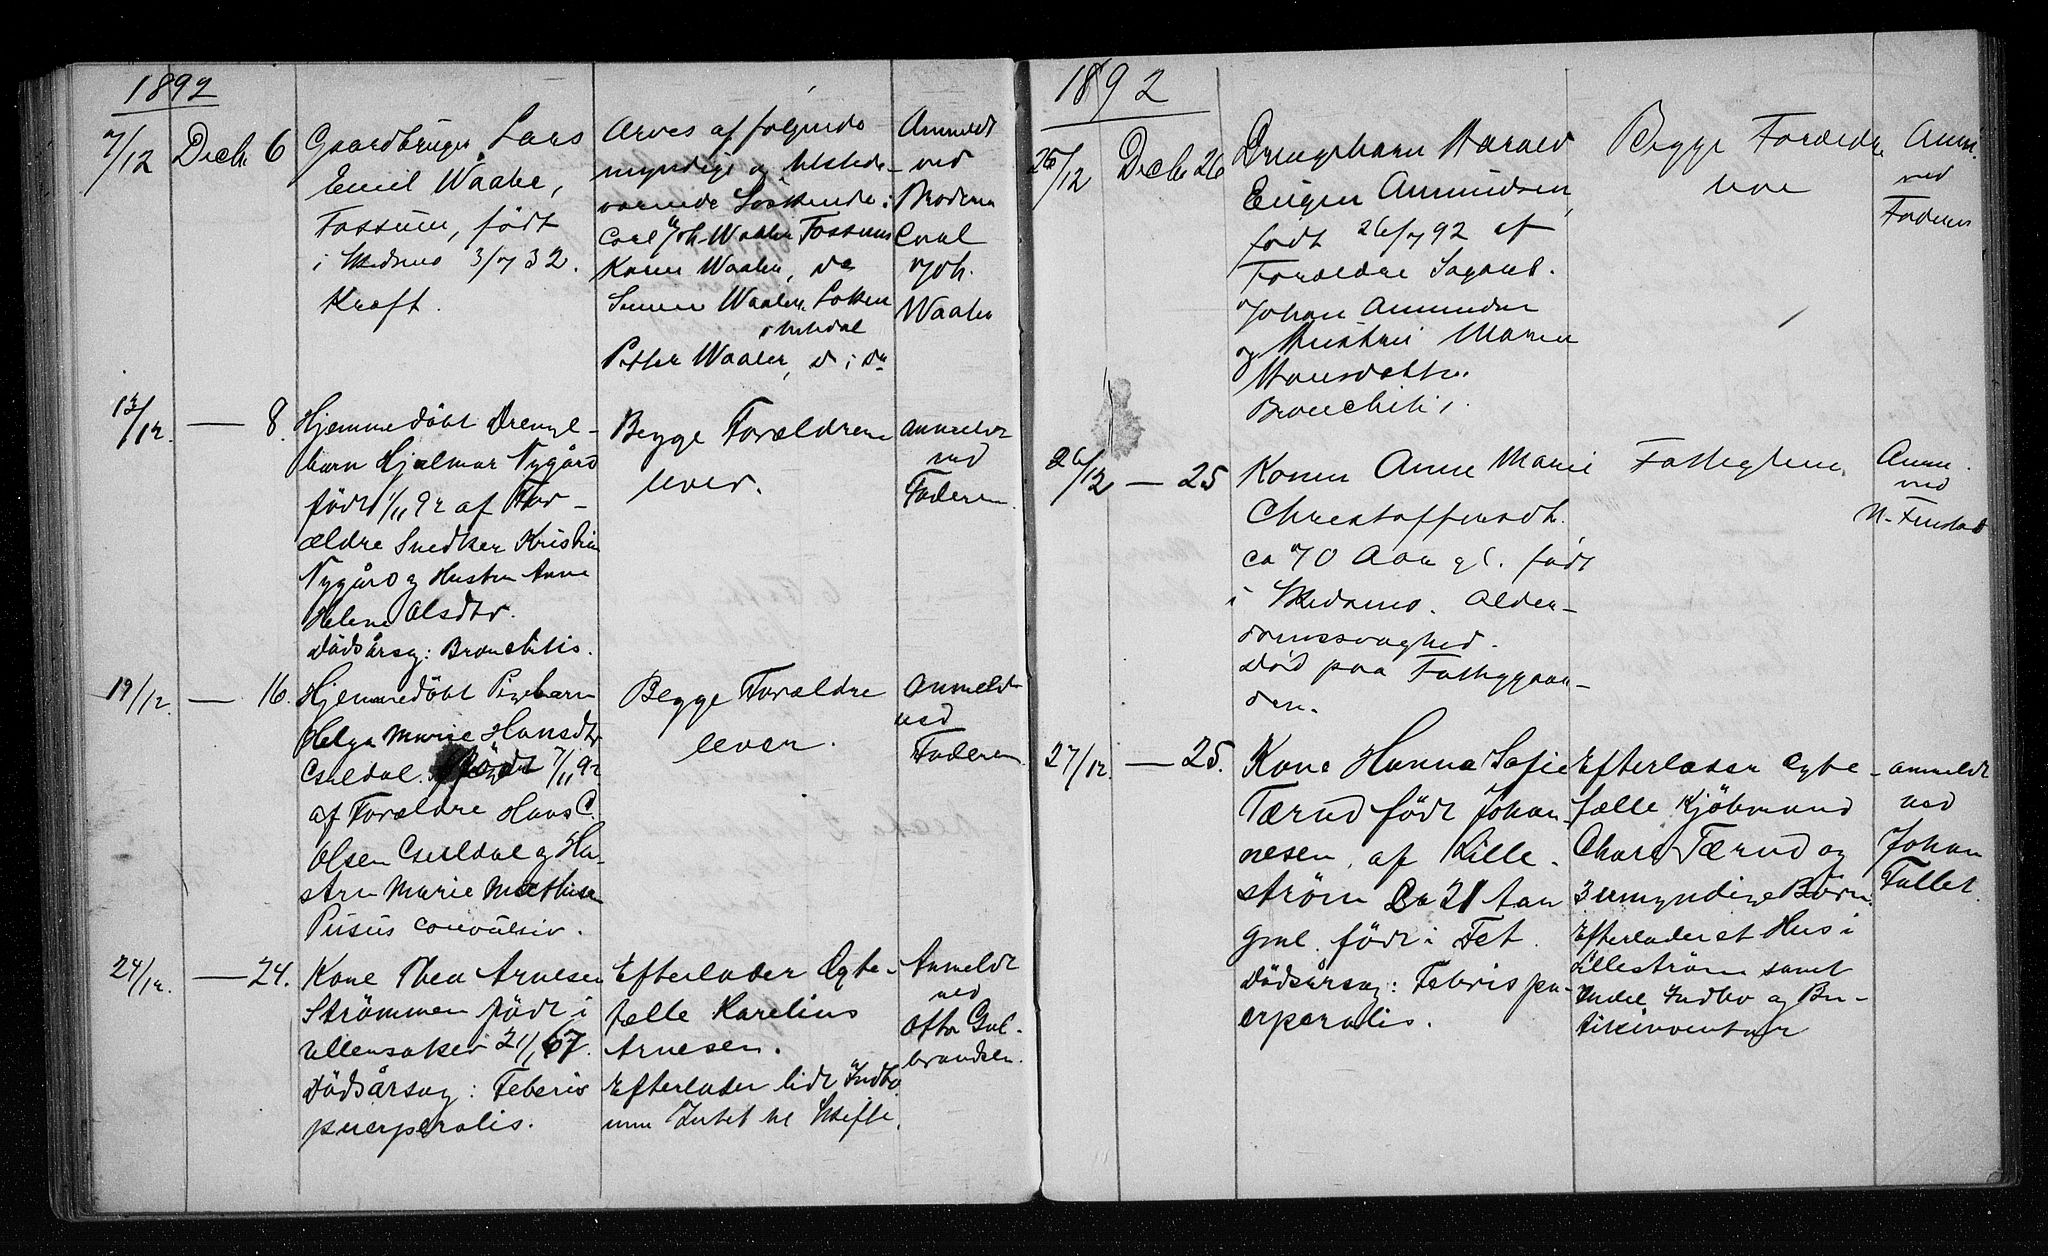 1892
7/12 Decbr 6
Gaardbruger Lars
Emil Waaler,
Fossum, født
i Skedsmo 3/7 32.
Kræft.
Arves af følgende
myndige og tilstede-
værende Søskende:
Carl Joh. Waaler Fossum
Karen Waaler, do
Waaler, Løken
Petter Waaler, d. i do
Anmeldt
ved
Broderen
Carl
Joh.
Waaler
13/12. — 8.
Hjemmedöbt Drenge-
barn Hjalmar Nygård
födt 1/11 92 af For-
ældre Snedker Kristian
Nygård og Hustru Anne
Helene Olsdtr.
Dödsårsag: Bronchitis.
Begge Forældrene
lever.
Anmeldt
ved
Faderen.
19/12. — 16.
Hjemmedöbt Pigebarn
Helga Marie Hansdtr
födt 7/11 92
af Forældre Hans C.
Olsen og Hu-
stru Marie Mathisen
convulsiv.
Begge Forældre
lever.
Anmeldt
ved
Faderen
24/12. — 24.
Kone Thea Arnesen
Strömmen födt i
Ullensaker 21/1 67.
Dödsårsag: Febris
puerperalis.
Efterlader Ægte-
fælle Karelius
Arnesen.
Efterlader lidt Indbo
men Intet til Skifte.
Anmeldt
ved
Otto Gul-
brandsen.
1892
26/12 Decbr 26
Drengebarn Harald
Eugen Amundsen,
født 26/7 92 af
Forældre Sagarb.
Johan Amundsen
og Hustru Maren
Hansdatter.
Bronchitis.
Begge Forældre
leve
Anm.
ved
Faderen
26/12 — 25
Konen Anne Marie
Christoffersdtr.
ca 70 Aar gl. født
i Skedsmo. Alder-
domssvaghed.
Død paa Fattiggaar-
den.
Fattiglem.
Anm.
ved
N. Finstad
27/12. — 25.
Kone Hanna Sofie
Tærud födt Johan-
nesen, af Lille-
ström Ca 21 Aar
gml. födt i Fet.
Dödsårsag: Febris pu-
erperalis.
Efterlader Ægte-
fælle Kjöbmand
Charl Tærud og
3 umyndige Börn.
Efterlader et Hus i
Lilleström samt
Indbo og Bu-
tikinventar
anmeldt
ved
Johan
Tallet.